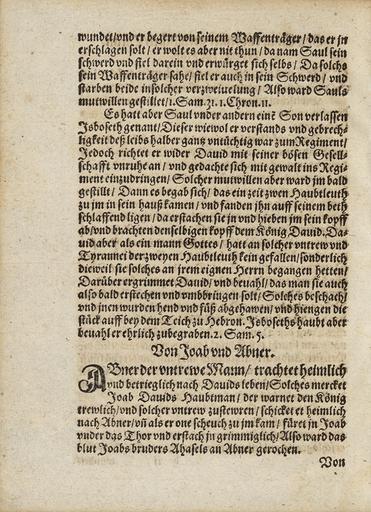 wundet/vnd er begert von seinem Waffenträger/das er jn
erschlagen solt/er wolt es aber nit thun/da nam Saul sein
schwerd vnd fiel darein vnd erwürget sich selbs/Da solchs
sein Waffenträger sahe/fiel er auch in sein Schwerd/vnd
starben beide in solcher verzweiuelung/Also ward Sauls
mutwillen gestillet/1.Sam.31.1.Chron.11.
Es hatt aber Saul vnder andern einē Son verlassen
Isboseth genant/Dieser wiewol er verstands vnd gebrech-
ligkeit deß leibs halber gantz vntüchtig war zum Regiment/
Jedoch richtet er wider Dauid mit seiner bösen Gesell-
schafft vnruhe an/vnd gedachte sich mit gewalt ins Regi-
ment einzudringen/Solcher mutwillen aber ward jm bald
gestillt/Dann es begab sich/das ein zeit zwen Haubtleuth
zu jm in sein hauß kamen/vnd fanden jhn auff seinem beth
schlaffend ligen/da erstachen sie jn vnd hieben jm sein kopff
ab/vnd brachten denselbigen kopff dem König Dauid. Da-
uid aber als ein mann Gottes/hatt an solcher vntrew vnd
Tyrannei der zweyen Haubtleuth kein gefallen/sonderlich
dieweil sie solches an jrem eignen Herrn begangen hetten/
Darüber ergrimmet Dauid/vnd beuahl/das man sie auch
also bald erstechen vnd vmbbringen solt/Solches beschach/
vnd jnen wurden hend vnd füß abgehawen/vnd hiengen die
stück auff bey dem Teich zu Hebron. Isboseths haubt aber
beuahl er ehrlich zubegraben.2. Sam.5.
Von Joab vnd Abner.
ABner der vntrewe Mann/trachtet heimlich
vnd betrieglich nach Dauids leben/Solches mercket
Joab Dauids Haubtman/der warnet den König
trewlich/vnd solcher vntrew zusteweren/schicket et heimlich
nach Abner/vñ als er one scheuch zu jm kam/füret jn Joab
vnder das Thor vnd erstach jn grimmiglich/Also ward das
blut Joabs bruders Ahasels an Abner gerochen.
Von